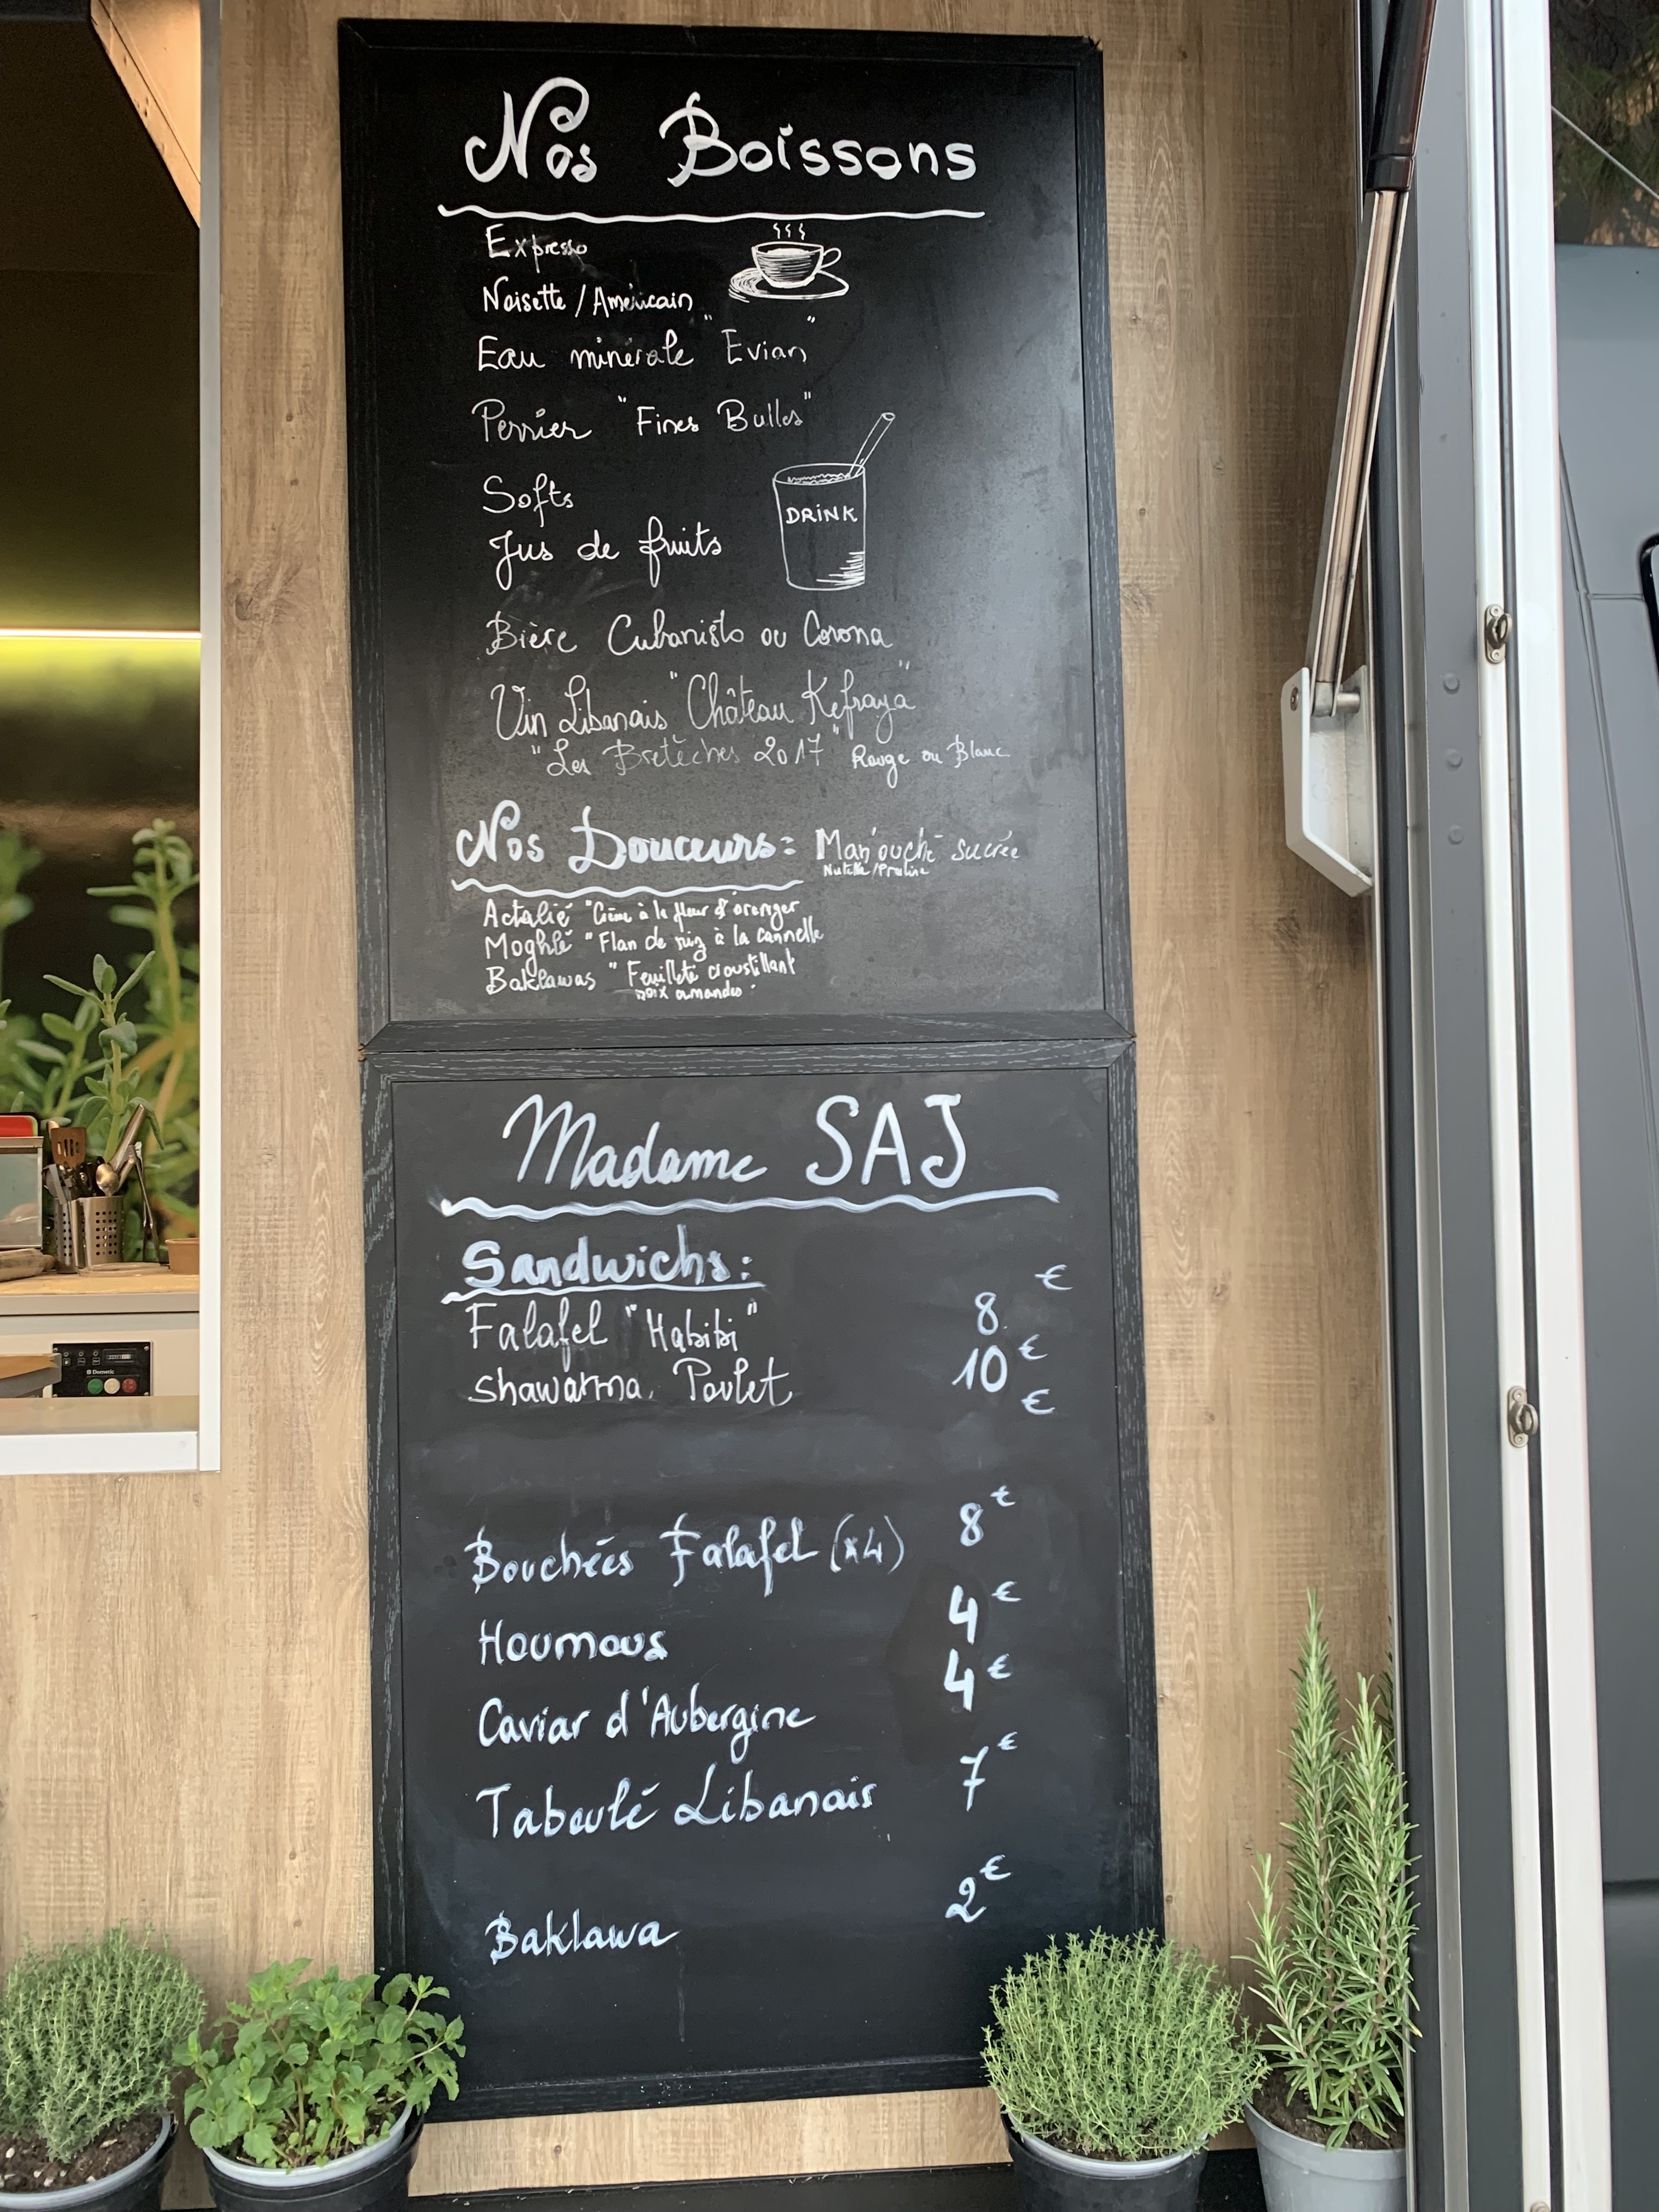 Nos Boissons
Expresso
Noisette / Américain
Eau minérale "Evian"
Perrier "Fines Bulles"
Softs
Jus de fruits
DRINK
Bière Cubanisto ou Corona
Vin Libanais "Château Kefraya"
"Les Bretèches 2017" Rouge ou Blanc
Nos Douceurs: Man'ouché sucrée
Nutella/Praline
Actalié "Crème à la fleur d'oranger
Moghlé "Flan de riz à la cannelle
Baklawas "Feuilleté croustillant
noix amandes"
Madame SAJ
Sandwichs:
€
Falafel "Habibi" 8
€
Shawarma Poulet 10
€
Bouchées Falafel (x4) 8€
Houmous 4€
Caviar d'Aubergine 4€
Taboulé Libanais 7€
Baklawa 2€
Dometic